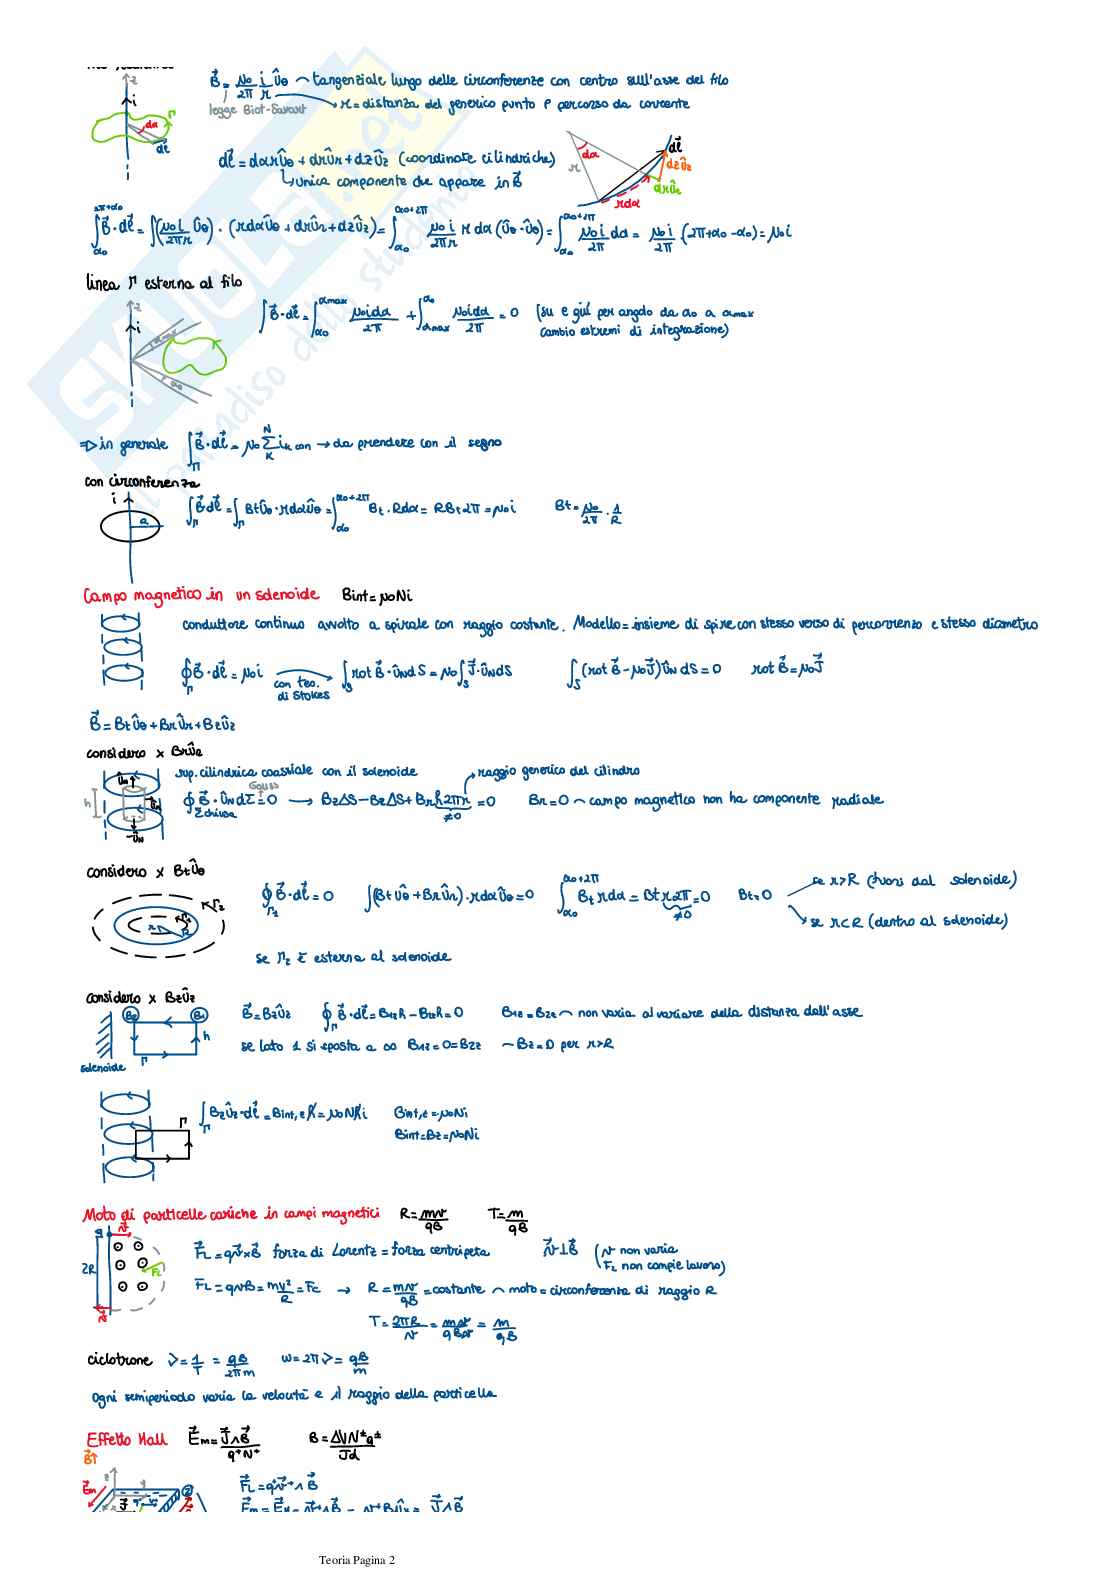 B⃗ = μ₀/2π i/r û_θ ⤳ tangenziale lungo delle circonferenze con centro sull'asse del filo
legge Biot-Savart
r = distanza del generico punto P percorso da corrente
dl⃗ = dα r û_θ + dr û_r + dz û_z (coordinate cilindriche)
↳ unica componente che appare in B⃗
∫_{α₀}^{2π+α₀} B⃗·dl⃗ = ∫(μ₀i/2πr û_θ)·(r dα û_θ + dr û_r + dz û_z) = ∫_{α₀}^{α₀+2π} μ₀i/2πr r dα (û_θ·û_θ) = ∫_{α₀}^{α₀+2π} μ₀i/2π dα = μ₀i/2π (2π+α₀-α₀) = μ₀i
linea Γ esterna al filo
∫B⃗·dl⃗ = ∫_{α₀}^{αmax} μ₀idα/2π + ∫_{αmax}^{α₀} μ₀idα/2π = 0 (su e giù per angolo da α₀ a αmax
cambio estremi di integrazione)
⇒ in generale ∫_Γ B⃗·dl⃗ = μ₀ Σ_K^N i_k con → da prendere con il segno
con circonferenza
∫_Γ B⃗dl⃗ = ∫_Γ Btû_θ·rdαû_θ = ∫_{α₀}^{α₀+2π} Bt·Rdα = RBt2π = μ₀i Bt = μ₀/2π · 1/R
Campo magnetico in un solenoide Bint = μ₀Ni
conduttore continuo avvolto a spirale con raggio costante. Modello = insieme di spire con stesso verso di percorrenza e stesso diametro
∮_Γ B⃗·dl⃗ = μ₀i con teo. di Stokes → ∫_S rot B⃗·û_N dS = μ₀∫_S J⃗·û_N dS ∫_S (rot B⃗ - μ₀J⃗)û_N dS = 0 rot B⃗ = μ₀J⃗
B⃗ = Btû_θ + Brû_r + Bzû_z
considero x Brû_r
sup. cilindrica coassiale con il solenoide raggio generico del cilindro
∮_{Σ chiusa} B⃗·û_N dΣ = 0 Gauss → BzΔS - BzΔS + Br h2πr = 0 ≠0 Br = 0 ⤳ campo magnetico non ha componente radiale
considero x Btû_θ
∮_{Γ₂} B⃗·dl⃗ = 0 ∫(Btû_θ + Brû_r)·rdαû_θ = 0 ∫_{α₀}^{α₀+2π} Bt rdα = Bt r2π = 0 ≠0 Bt = 0
se r>R (fuori dal solenoide)
se r<R (dentro al solenoide)
se Γ₂ è esterna al solenoide
considero x Bzû_z
B⃗ = Bzû_z ∮_Γ B⃗·dl⃗ = B₁zh - B₂zh = 0 B₁z = B₂z ⤳ non varia al variare della distanza dall'asse
se lato 1 si sposta a ∞ B₁z = 0 = B₂z ⤳ Bz = 0 per r>R
solenoide
∫_Γ Bzû_z·dl⃗ = Bint,z h = μ₀Nhi Bint,z = μ₀Ni
Bint = Bz = μ₀Ni
Moto di particelle cariche in campi magnetici R = mv/qB T = m/qB
F⃗L = qv⃗×B⃗ forza di Lorentz = forza centripeta v⃗⊥B⃗ (v non varia
F_L non compie lavoro)
FL = qvB = mv²/R = Fc → R = mv/qB = costante ⤳ moto = circonferenza di raggio R
T = 2πR/v = mv/qBv = m/qB
ciclotrone ν = 1/T = qB/2πm ω = 2πν = qB/m
Ogni semiperiodo varia la velocità e il raggio della particella
Effetto Hall E⃗m = J⃗∧B⃗/q⁺N⁺ B = ΔVN±q±/Jd
B⃗↑
F⃗L = q⁺v⃗⁺∧B⃗
Teoria Pagina 2